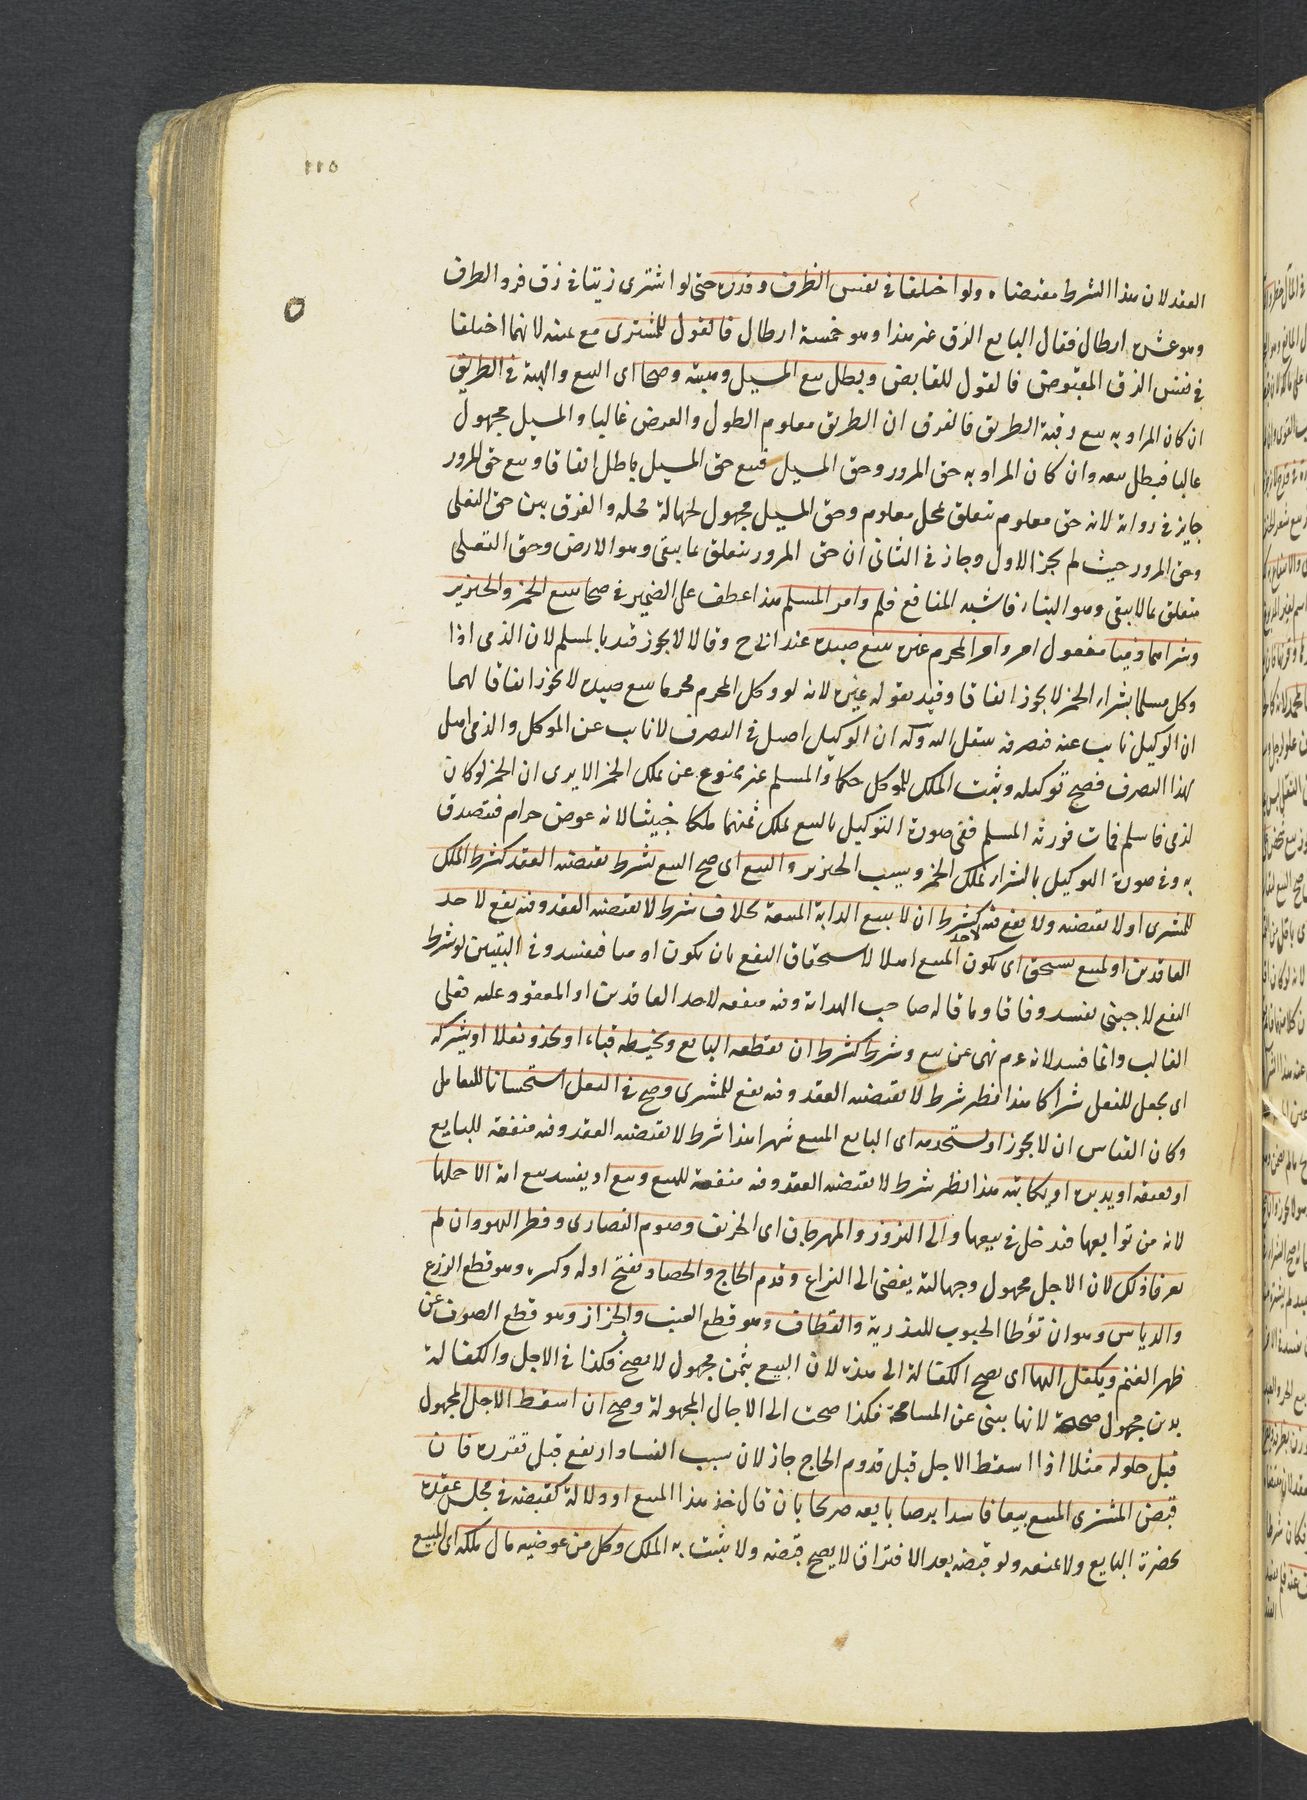 ١١٥
العقد لان هذا الشرط مقتضاه ولو اختلفا فى نفس الظرف وقدره حتى لو اشترى زيتا فى زق فرد الظرف
وهو عشرة ارطال فقال البايع الزق غير هذا وهو خمسة ارطال فالقول للمشترى مع يمينه لانهما اختلفا
فى نفس الزق المقبوض فالقول للقابض وبطل بيع المسيل وهبته وصحا اى البيع والهبة فى الطريق
ان كان المراد به بيع رقبة الطريق فالفرق ان الطريق معلوم الطول والعرض غالبا والمسيل مجهول
غالبا فبطل بيعه وان كان المراد به حق المرور وحق المسيل فبيع حق المسيل باطل اتفاقا وبيع حق المرور
جايز فى رواية لانه حق معلوم متعلق بمحل معلوم وحق المسيل مجهول لجهالة محله والفرق بين حق التعلى
وحق المرور حيث لم يجز الاول وجاز فى الثانى ان حق المرور يتعلق بما يبقى وهو الارض وحق التعلى
متعلق بما لا يبقى وهو البناء فاشبه المنافع فلم وامر المسلم هذا عطف على الضمير فى صحا ببيع الخمر والخنزير
وشرائهما ذميا مفعول امر وامر المحرم غيره ببيع صيده عند ابى ح وقالا لا يجوز قيد بالمسلم لان الذمى اذا
وكل مسلما بشراء الخمر لا يجوز اتفاقا وقيد بقوله غيره لانه لو وكل المحرم محرما ببيع صيده لا يجوز اتفاقا لهما
ان الوكيل نايب عنه فتصرفه ينتقل اليه وله ان الوكيل اصيل فى التصرف لا نايب عن الموكل والذمى اهل
لهذا التصرف فصح توكيله ويثبت الملك للموكل حكما والمسلم غير ممنوع عن تملك الخمر الا يرى ان الخمر لو كان
لذمى فاسلم فمات فورثه المسلم ففى صورة التوكيل بالبيع يملك ثمنهما ملكا خبيثا لانه عوض حرام فيتصدق
به وفى صورة التوكيل بالشراء تملك الخمر ويسيب الخنزير والبيع اى صح البيع بشرط يقتضيه العقد كشرط الملك
للمشترى او لا يقتضيه ولا نفع فيه كشرط ان لا يبيع الدابة المبيعة بخلاف شرط لا يقتضيه العقد وفيه نفع لاحد
العاقدين او لمبيع يستحق اى يكون لاحد المبيع اهلا لاستحقاق النفع بان يكون ادميا فيفسد وفى اليقين لو شرط
النفع لاجنبى يفسد وفاقا وما قاله صاحب الهداية وفيه منفعة لاحد العاقدين او المعقود عليه فعلى
الغالب وانما فسد لانه عم نهى عن بيع وشرط كشرط ان يقطعه البايع ويخيطه قباء او يحذو نعلا او يشركه
اى يجعل للنعل شراكا هذا نظير شرط لا يقتضيه العقد وفيه نفع للمشترى وصح فى النعل استحسانا للتعامل
وكان القياس ان لا يجوز او يستخدمه اى البايع المبيع شهرا هذا شرط لا يقتضيه العقد وفيه منفعة للبايع
او يعتقه او يدبره او يكاتبه هذا نظير شرط لا يقتضيه العقد وفيه منفعة للمبيع وبيع او يفسد بيع امة الا حملها
لانه من توابعها فيدخل فى بيعها والى النيروز والمهرجان اى الخريف وصوم النصارى وفطر اليهود وان لم
يعرفا ذلك لان الاجل مجهول وجهالته يفضى الى النزاع وقدوم الحاج والحصاد بفتح اوله وكسره وهو قطع الزرع
والدياس وهو ان توطأ الحبوب للتذرية والقطاف وهو قطع العنب والجزاز وهو قطع الصوف عن
ظهر الغنم ويكفل اليها اى يصح الكفالة الى هذه لان البيع بثمن مجهول لا يصح فكذا فى الاجل والكفالة
بدين مجهول صحيحة لانها يبنى عن المسامحة فكذا صحت الى الاجال المجهولة وصح ان اسقط الاجل المجهول
قبل حلوله مثلا اذا اسقط الاجل قبل قدوم الحاج جاز لان سبب الفساد ارتفع قبل تقرره فان
قبض المشترى المبيع بيعا فاسدا برضا بايعه صريحا بان قال خذ هذا المبيع او دلالة كقبضه فى مجلس عقده
بحضرة البايع ولا يمنعه ولو قبضه بعد الافتراق لا يصح قبضه ولا يثبت به الملك وكل من عوضيه مال ملكه اى المبيع